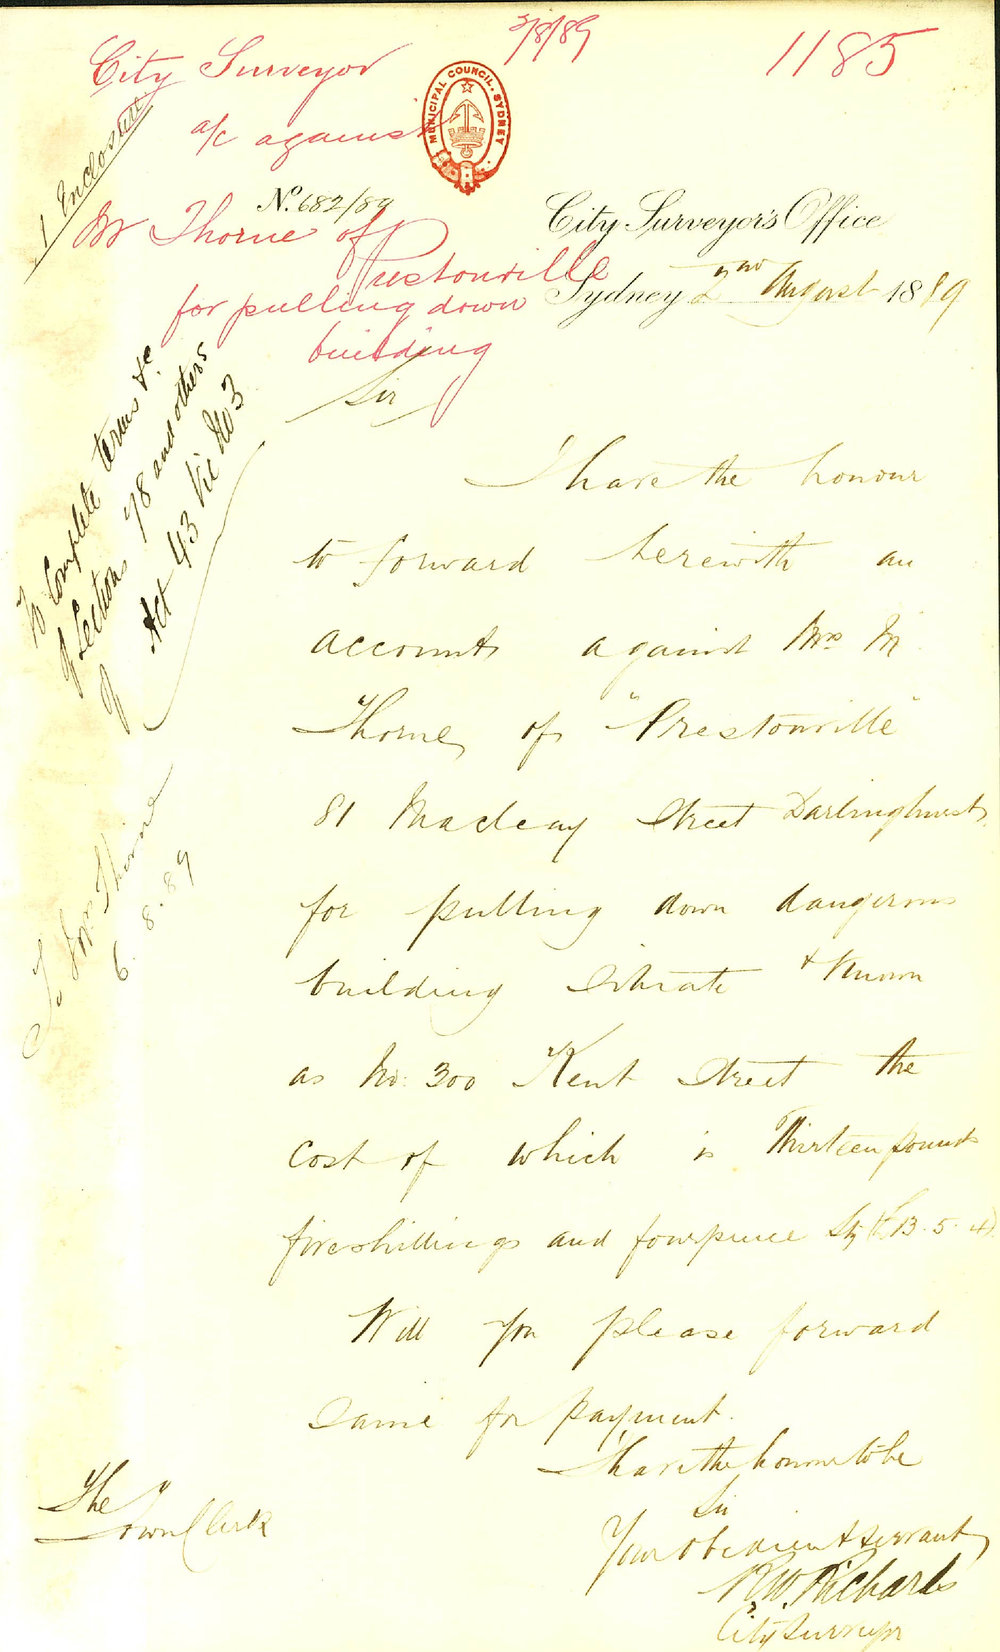 3/8/89
1185
City Surveyor
a/c against
Mr Thorne of
Prestonville
for pulling down
building
MUNICIPAL COUNCIL. SYDNEY
1 Enclosure
No. 682/89
City Surveyor's Office
Sydney 2nd August 1889
To Complete terms &c
of Sections 78 and others
of Act 43 Vic No 3
To Mrs Thorne
6. 8. 89
Sir
I have the honour
to forward herewith an
accounts against Mrs M
Thorne of "Prestonville"
81 Macleay Street Darlinghurst
for pulling down dangerous
building situate & known
as No. 300 Kent Street the
cost of which is Thirteen pounds
five shillings and fourpence Stg (£13.5.4)
Will you please forward
same for payment.
I have the honour to be
Sir
Your obedient servant
R W. Richards
City Surveyor
The
Town Clerk